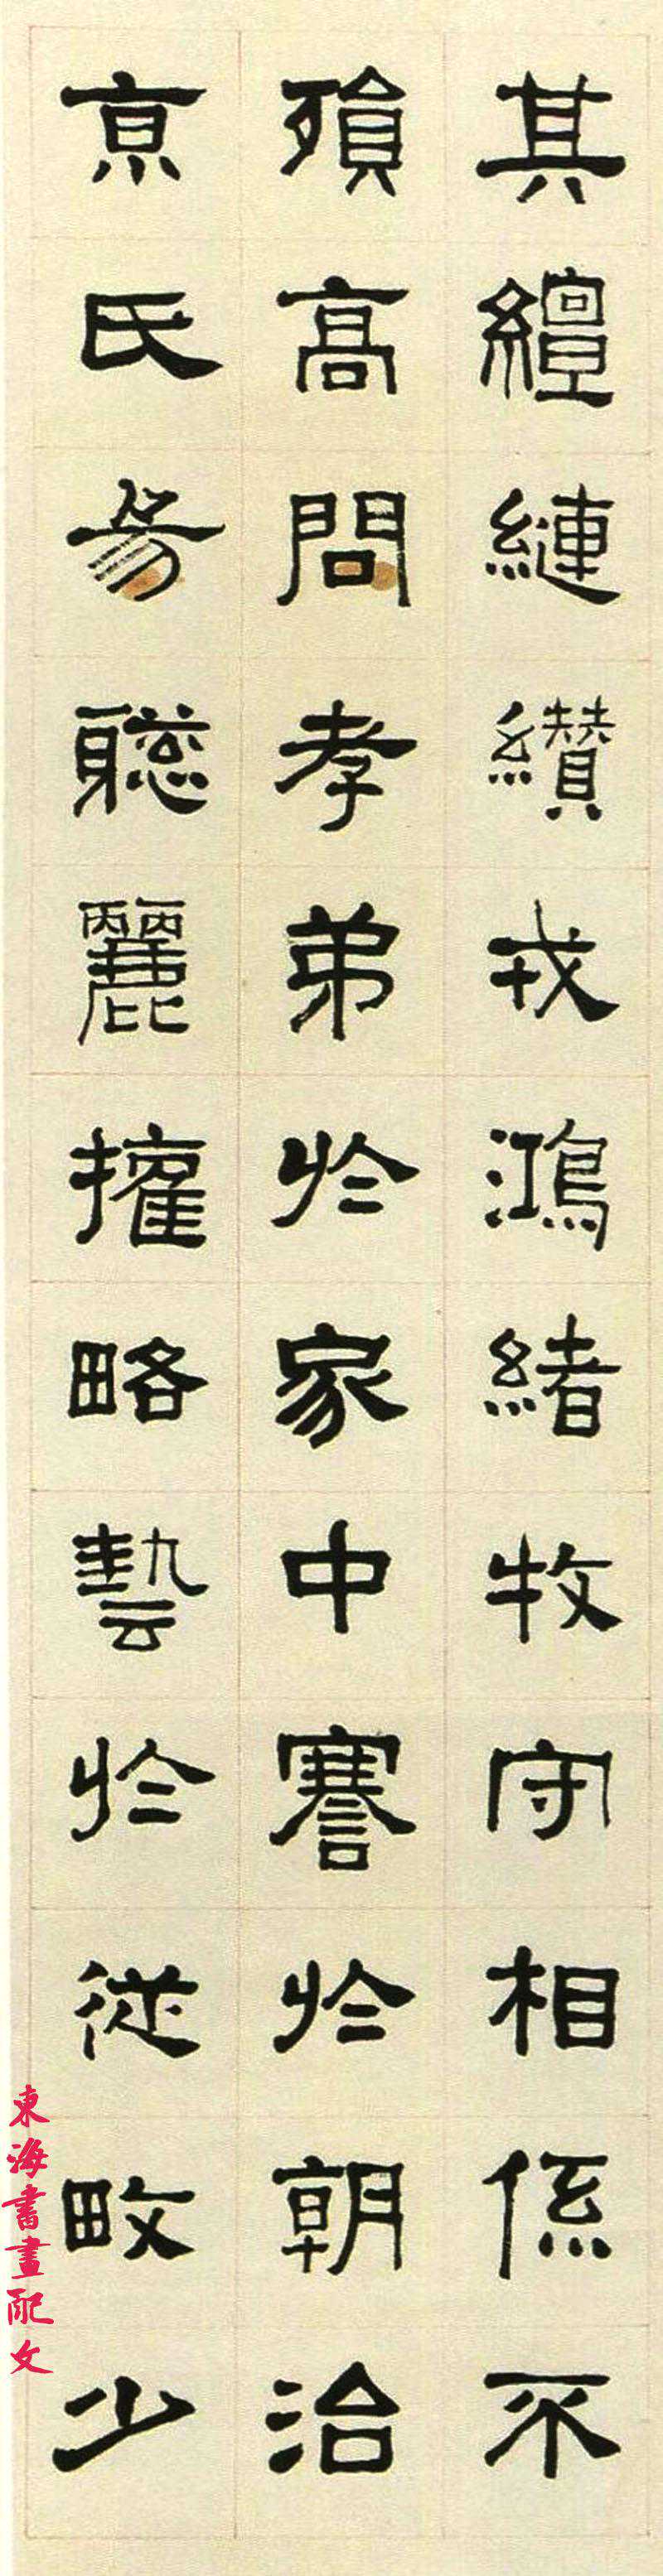 其繵縺纘戎鴻緒牧守相係不
殞高問孝弟於家中謇於朝治
京氏易聦麗摧略藝於從畋少
東海書畫配文